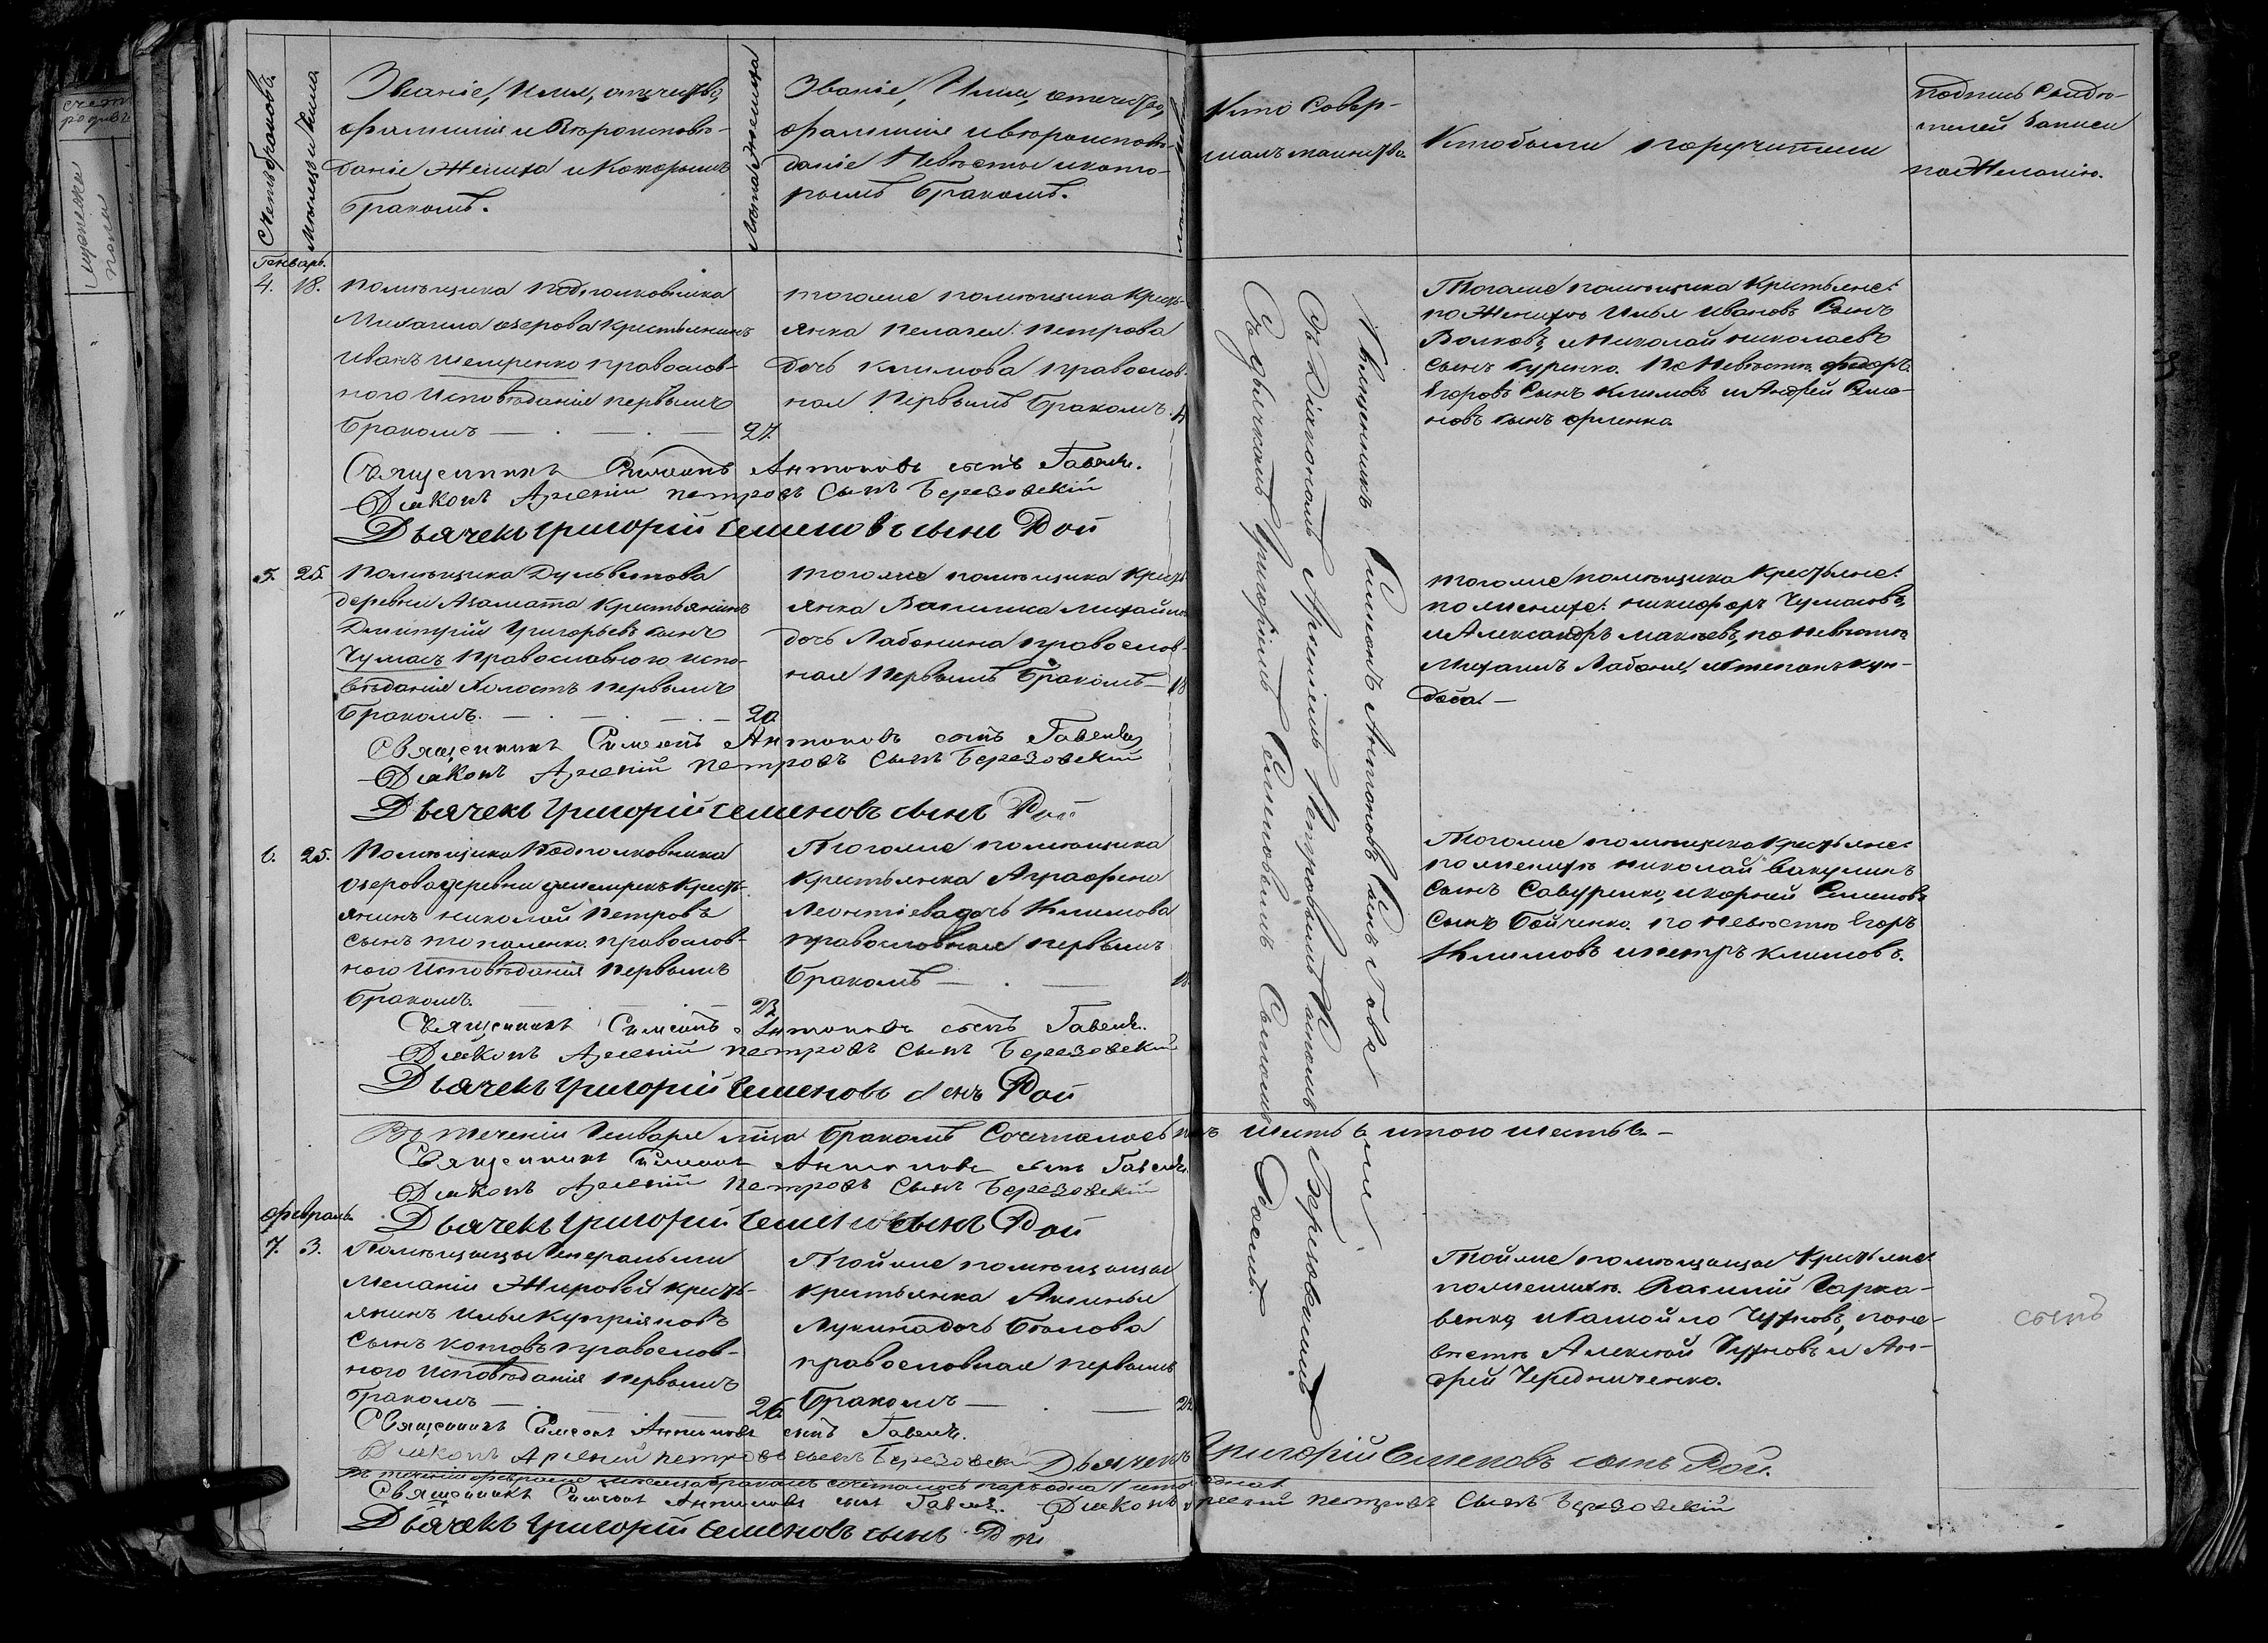 счетъ
родивш
мужеска
пола
Счетъ браковъ.
Мѣсяцъ и числа
Званіе, Имя, отчество,
фамилія и вѣроисповѣ-
даніе Жениха и Которымъ
бракомъ.
Лѣта Жениха
Званіе, Имя, отчество,
фамилія и вѣроисповѣ-
даніе Невѣсты и кото-
рымъ бракомъ.
Кто Совер-
шалъ таинство.
Кто были поручители
Подпись Свидѣ-
телей записи
по Желанію.
Генварь.
4. 18.
Помѣщика Подполковника
Михаила Озерова крестьянинъ
Иванъ Шемренко православ-
ного Исповѣданія первымъ
бракомъ 27.
тогоже помѣщика кресть-
янка Пелагея Петрова
дочь Климова православ-
ная первымъ бракомъ.
Тогоже помѣщика Крестьяне:
по Женихѣ Илья Ивановъ Сынъ
Волковъ, и Николай Николаевъ
сынъ Куренко. По Невѣстѣ Федоръ
Егоровъ Сынъ Климовъ и Андрей
новъ сынъ
Священникъ Симеонъ Антоновъ сынъ
Діаконъ Арсеній Петровъ Сынъ Березовскій
Дьячекъ Григорій Семеновъ сынъ Рой
5. 25.
Помѣщика
деревни Азамата Крестьянинъ
Дмитрій Григорьевъ сынъ
Чумакъ Православного испо-
вѣданія Холостъ первымъ
бракомъ. 20
тогоже помѣщика кресть-
янка Михайлова
дочь Лабонина православ-
ная первымъ бракомъ 18
тогоже помѣщика Крестьяне:
по женихѣ: Никифоръ Чумаковъ,
и Александръ по Невѣстѣ
Михаилъ и Степанъ Кун-
доба.
Священникъ Симеонъ Антоновъ сынъ
Діаконъ Арсеній Петровъ Сынъ Березовскій
Дьячекъ Григорій Семеновъ сынъ Рой
6. 25.
Помѣщика Подполковника
Озерова деревни кресть-
янинъ Николай Петровъ
сынъ Тополенко православ-
ного Исповѣданія первымъ
бракомъ. 23
Тогоже помѣщика
крестьянка Аграфена
Леонтіева дочь Климова
православная первымъ
бракомъ
Тогоже помѣщика крестьяне:
по женихѣ Николай Вакулинъ
сынъ Савуренко, и Корней Семеновъ
Сынъ Бойченко. по Невѣстѣ Егоръ
Климовъ и Петръ Климовъ.
Священникъ Симеонъ Антоновъ сынъ
Діаконъ Арсеній Петровъ Сынъ Березовскій
Дьячекъ Григорій Семеновъ сынъ Рой
Въ теченіи Генваря мѣца бракомъ Сочеталось паръ шесть 6 итого шесть 6.
Священникъ Симеонъ Антоновъ сынъ
Діаконъ Арсеній Петровъ Сынъ Березовскій
Дьячекъ Григорій Семеновъ сынъ Рой
Февраль
7. 3.
Помѣщицы Генеральши
Меланіи Жировой кресть-
янинъ Илья Купріяновъ
Сынъ Котовъ православ-
ного Исповѣданія первымъ
бракомъ 26
Тойже помѣщицы
крестьянка Аксинья
Лукина дочь Бѣлова
православная первымъ
бракомъ
Тойже помѣщицы Крестьяне:
по женихѣ. Василій Гарка-
венко и Самойло по не-
вѣстѣ Алексѣй и Ан-
дрей Чередниченко.
сынъ
Священникъ Симеонъ Антоновъ сынъ
Діаконъ Арсеній Петровъ сынъ Березовскій Дьячекъ Григорій Семеновъ сынъ Рой.
въ теченіи февраля мѣсяца бракомъ сочеталось паръ одна 1 итого одна 1
Священникъ Симеонъ Антоновъ сынъ Діаконъ Арсеній Петровъ Сынъ Березовскій
Дьячекъ Григорій Семеновъ сынъ Рой
Священникъ Симеонъ Антоновъ Сынъ
Съ Діакономъ Арсеніемъ Петровымъ Сыномъ Березовскимъ
Съ дьячкомъ Григоріемъ Семеновымъ Сыномъ Роемъ.